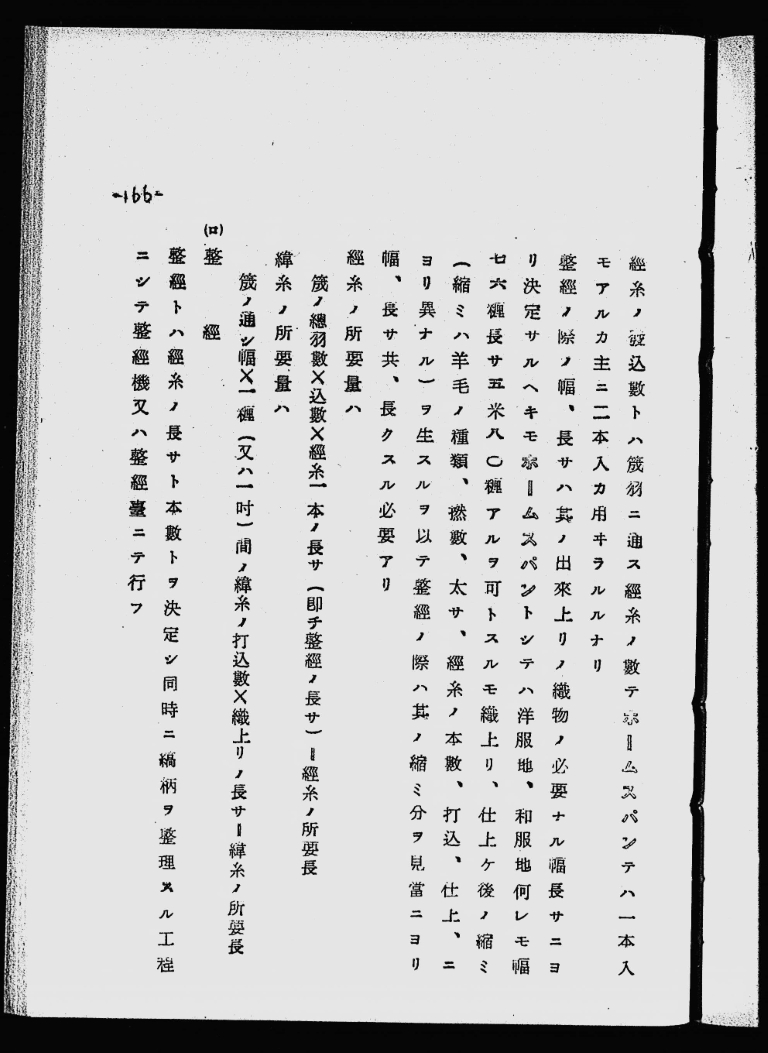 經糸ノ設込數トハ筬羽ニ通ス經糸ノ數テホームスパンテハ一本入
モアルカ主ニ二本入カ用ヰラルルナリ
整經ノ際ノ幅、長サハ其ノ出來上リノ織物ノ必要ナル幅長サニヨ
リ決定サルヘキモホームスパントシテハ洋服地、和服地何レモ幅
七六糎長サ五米八〇糎アルヲ可トスルモ織上リ、仕上ケ後ノ縮ミ
(縮ミハ羊毛ノ種類、撚數、太サ、經糸ノ本數、打込、仕上、ニ
ヨリ異ナル)ヲ生スルヲ以テ整經ノ際ハ其ノ縮ミ分ヲ見當ニヨリ
幅、長サ共、長クスル必要アリ
經糸ノ所要量ハ
筬ノ總羽數×込數×經糸一本ノ長サ(即チ整經ノ長サ)=經糸ノ所要長
緯糸ノ所要量ハ
筬ノ通シ幅×一糎(又ハ一吋)間ノ緯糸ノ打込數×織上リノ長サ=緯糸ノ所要長
(ロ)整經
整經トハ經糸ノ長サト本數トヲ決定シ同時ニ縞柄ヲ整理スル工程
ニシテ整經機又ハ整經臺ニテ行フ
-166-